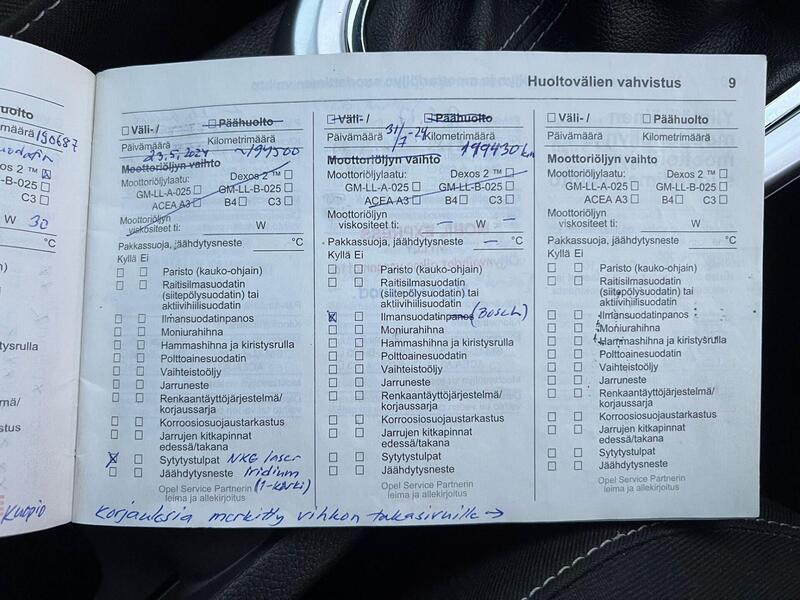 Huoltovälien vahvistus 9
uolto
määrä 190687
os 2 ™
-B-025
C3
W 30
°C
istysrulla
mä/
astus
Kuopio
Väli- / Päähuolto
Päivämäärä Kilometrimäärä
23.5.2024 ~197500
Moottoriöljyn vaihto
Moottoriöljylaatu: Dexos 2 ™
GM-LL-A-025 GM-LL-B-025
ACEA A3 B4 C3
Moottoriöljyn
viskositeet ti: W
Pakkassuoja, jäähdytysneste °C
Kyllä Ei
Paristo (kauko-ohjain)
Raitisilmasuodatin
(siitepölysuodatin) tai
aktiivihiilisuodatin
Ilmansuodatinpanos
Moniurahihna
Hammashihna ja kiristysrulla
Polttoainesuodatin
Vaihteistoöljy
Jarruneste
Renkaantäyttöjärjestelmä/
korjaussarja
Korroosiosuojaustarkastus
Jarrujen kitkapinnat
edessä/takana
Sytytystulpat NKG laser
Jäähdytysneste Iridium
(1-kärki)
Opel Service Partnerin
leima ja allekirjoitus
Väli- / Päähuolto
Päivämäärä 31/7-24 Kilometrimäärä
199430 km
Moottoriöljyn vaihto
Moottoriöljylaatu: Dexos 2 ™
GM-LL-A-025 GM-LL-B-025
ACEA A3 B4 C3
Moottoriöljyn
viskositeet ti: — W —
Pakkassuoja, jäähdytysneste — °C
Kyllä Ei
Paristo (kauko-ohjain)
Raitisilmasuodatin
(siitepölysuodatin) tai
aktiivihiilisuodatin
Ilmansuodatinpanos (BOSCH)
Moniurahihna
Hammashihna ja kiristysrulla
Polttoainesuodatin
Vaihteistoöljy
Jarruneste
Renkaantäyttöjärjestelmä/
korjaussarja
Korroosiosuojaustarkastus
Jarrujen kitkapinnat
edessä/takana
Sytytystulpat
Jäähdytysneste
Opel Service Partnerin
leima ja allekirjoitus
Väli- / Päähuolto
Päivämäärä Kilometrimäärä
Moottoriöljyn vaihto
Moottoriöljylaatu: Dexos 2 ™
GM-LL-A-025 GM-LL-B-025
ACEA A3 B4 C3
Moottoriöljyn
viskositeet ti: W
Pakkassuoja, jäähdytysneste °C
Kyllä Ei
Paristo (kauko-ohjain)
Raitisilmasuodatin
(siitepölysuodatin) tai
aktiivihiilisuodatin
Ilmansuodatinpanos
Moniurahihna
Hammashihna ja kiristysrulla
Polttoainesuodatin
Vaihteistoöljy
Jarruneste
Renkaantäyttöjärjestelmä/
korjaussarja
Korroosiosuojaustarkastus
Jarrujen kitkapinnat
edessä/takana
Sytytystulpat
Jäähdytysneste
Opel Service Partnerin
leima ja allekirjoitus
Korjauksia merkitty vihkon takasivuille →